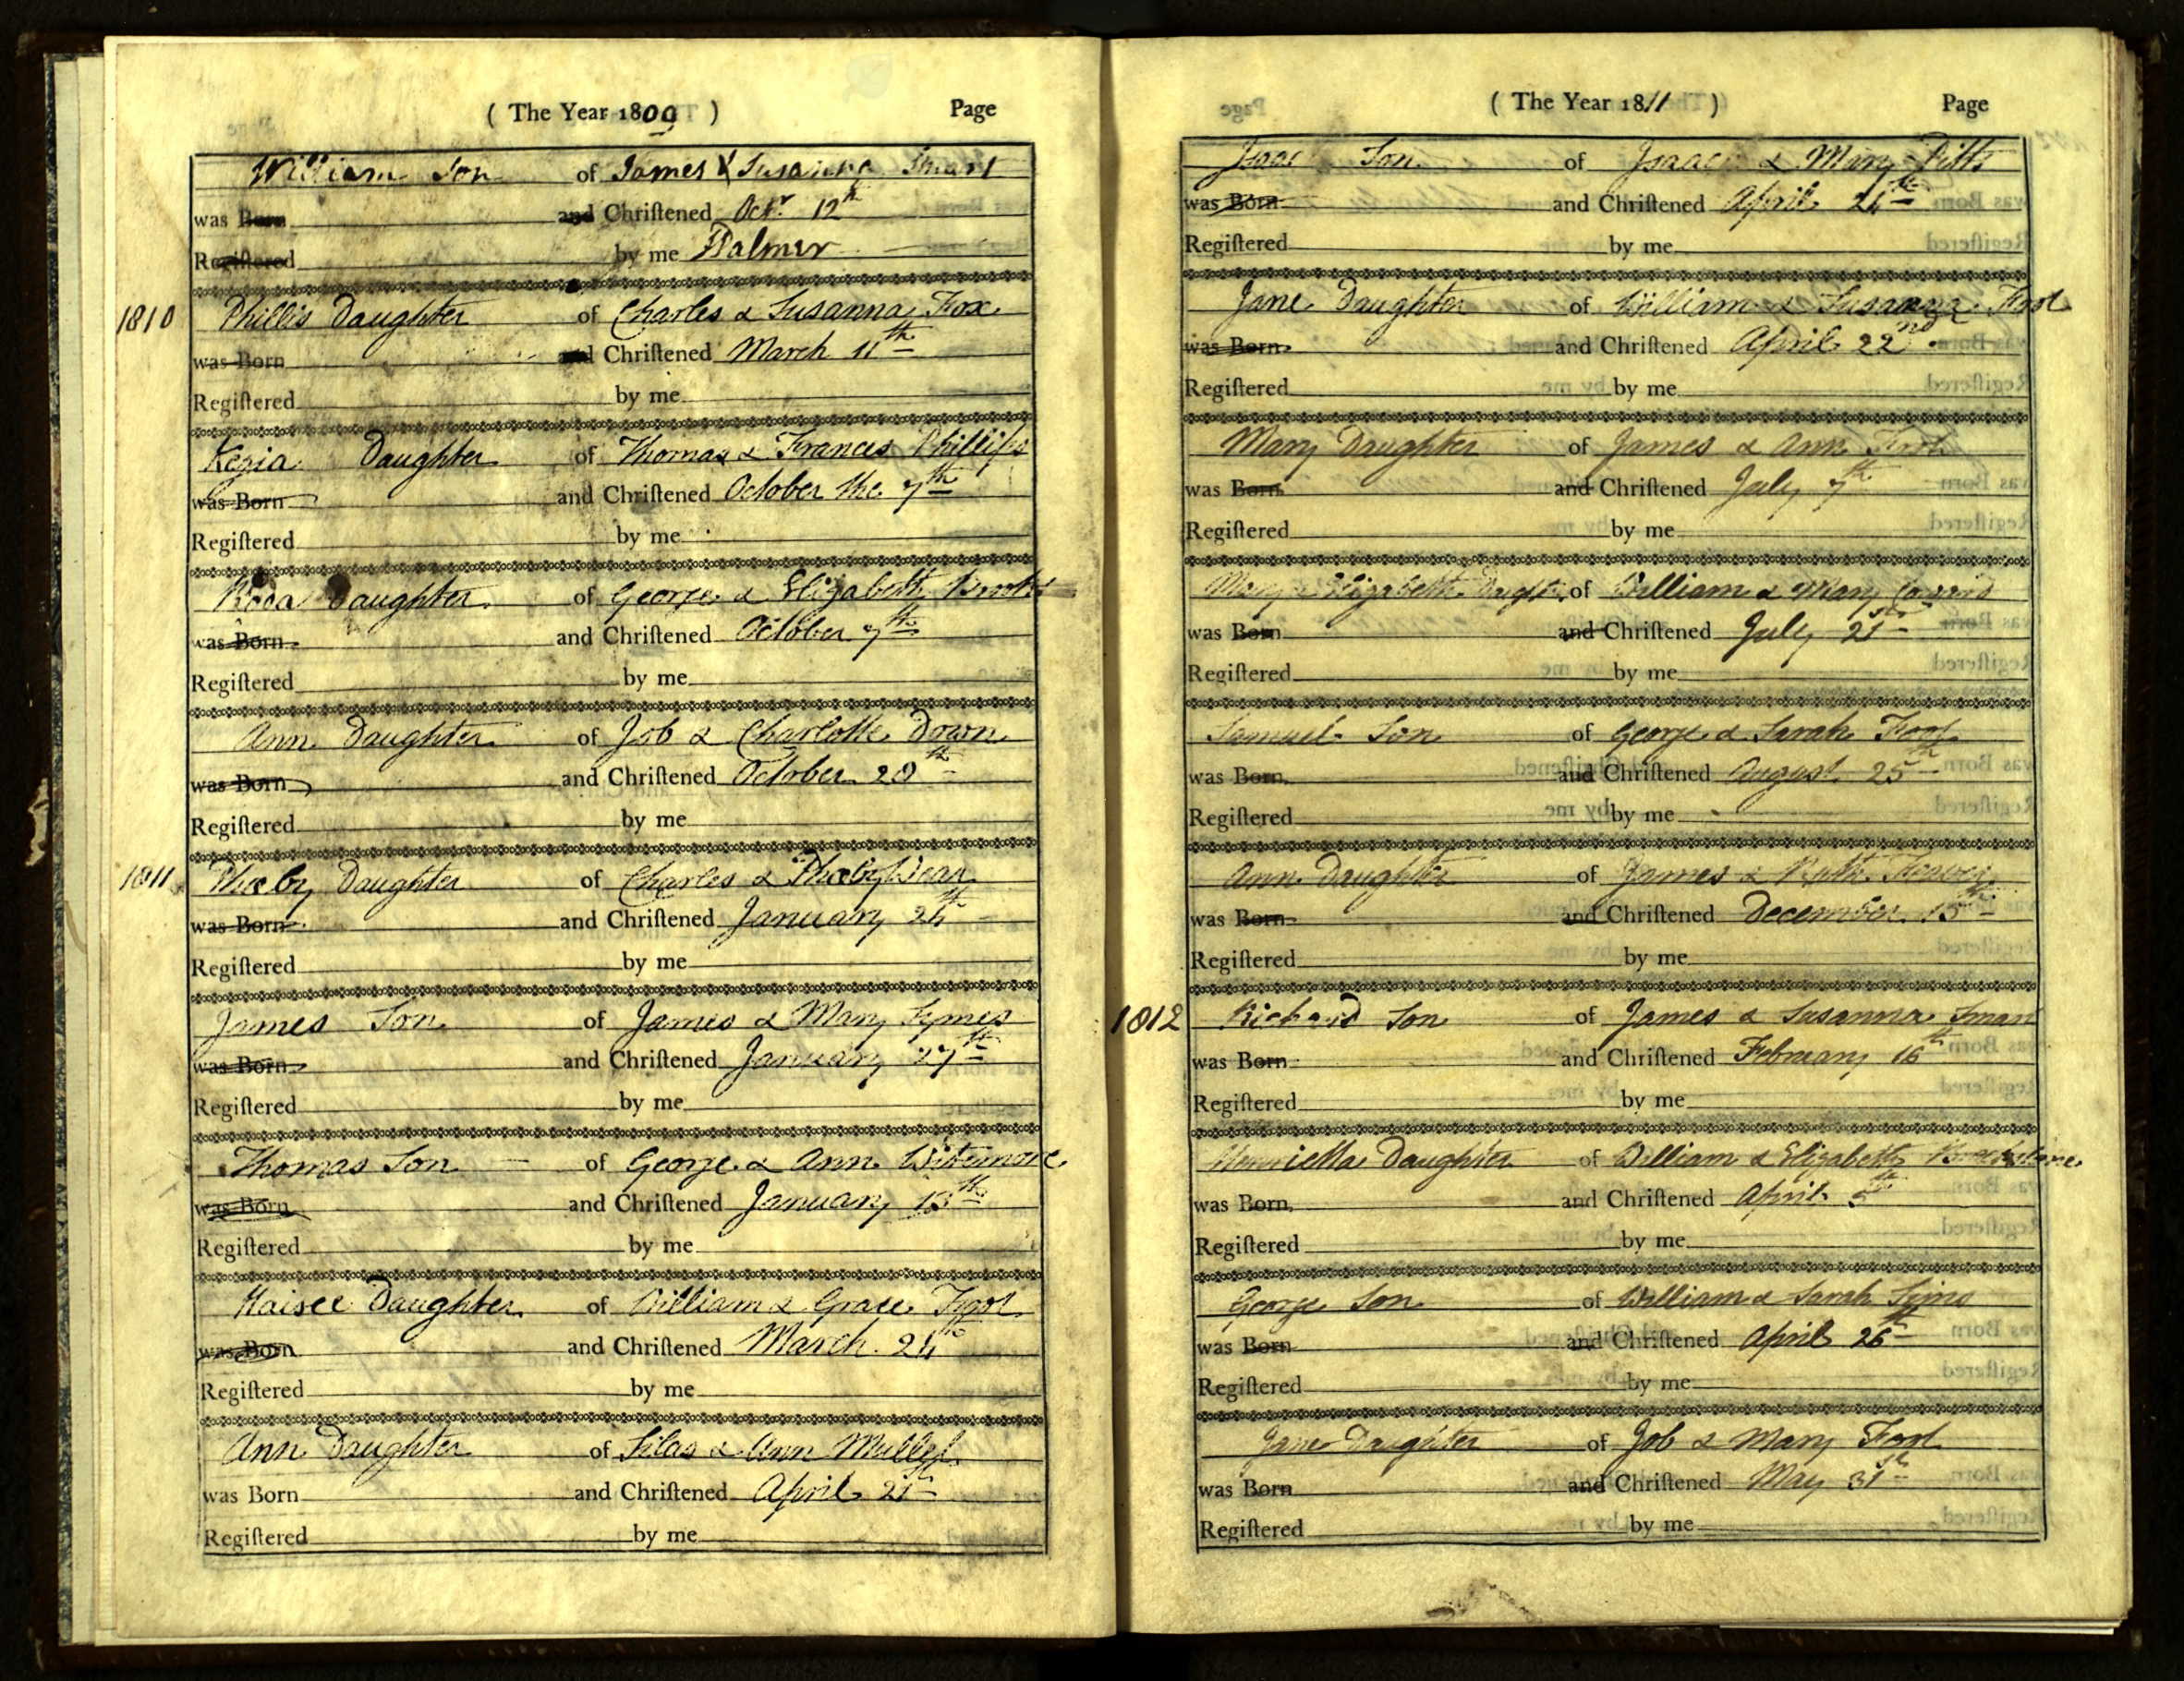 ( The Year 1809 ) Page
William Son of James & Susanna Smart
was Born and Chriſtened Octr. 12th
Regiſtered by me Palmer
1810
Phillis Daughter of Charles & Susanna Fox
was Born and Chriſtened March 11th
Regiſtered by me
Kezia Daughter of Thomas & Frances Phillips
was Born and Chriſtened October the 7th
Regiſtered by me
Roda Daughter of George & Elizabeth
was Born and Chriſtened October 7th
Regiſtered by me
Ann Daughter of Job & Charlotte Drown
was Born and Chriſtened October 20th
Regiſtered by me
1811
Phœby Daughter of Charles & Phœby
was Born and Chriſtened January 24th
Regiſtered by me
James Son of James & Mary Symes
was Born and Chriſtened January 27th
Regiſtered by me
Thomas Son of George & Ann Witemore
was Born and Chriſtened January 13th
Regiſtered by me
Daughter of William & Grace Foot
was Born and Chriſtened March 24th
Regiſtered by me
Ann Daughter of Silas & Ann Mullet
was Born and Chriſtened April 21st
Regiſtered by me
( The Year 1811 ) Page
Isaac Son of Isaac & Mary Pitts
was Born and Chriſtened April 21st
Regiſtered by me
Jane Daughter of William & Susanna Foot
was Born and Chriſtened April 22nd
Regiſtered by me
Mary Daughter of James & Ann
was Born and Chriſtened July 7th
Regiſtered by me
Mary Elizabeth Daughtr. of William & Mary
was Born and Chriſtened July 21st
Regiſtered by me
Samuel Son of George & Sarah Foot
was Born and Chriſtened August 25th
Regiſtered by me
Ann Daughter of James & Ruth
was Born and Chriſtened December 15th
Regiſtered by me
1812
Richard Son of James & Susanna Smart
was Born and Chriſtened February 16th
Regiſtered by me
Henrietta Daughter of William & Elizabeth
was Born and Chriſtened April 5th
Regiſtered by me
George Son of William & Sarah
was Born and Chriſtened April 26th
Regiſtered by me
Jane Daughter of Job & Mary Foot
was Born and Chriſtened May 31st
Regiſtered by me